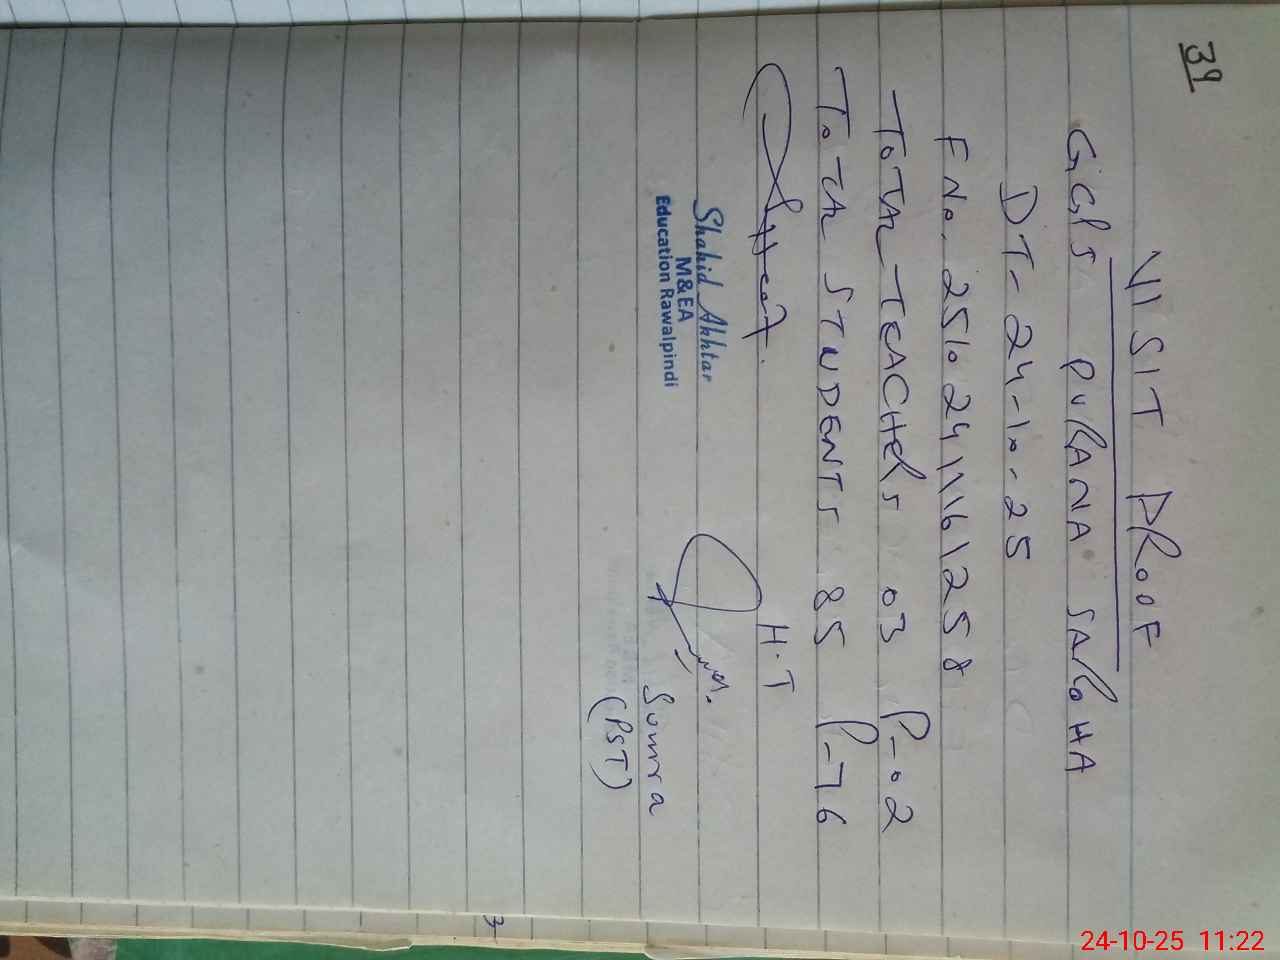 39
VISIT PROOF
GGPS PURANA SAROHA
DT- 24-10-25
F No. 25102411161258
TOTAL TEACHERS 03 P-02
TOTAL STUDENTS 85 P-76
H.T
Shahid Akhtar
M&EA
Education Rawalpindi
Sumra
(PST)
3
24-10-25 11:22